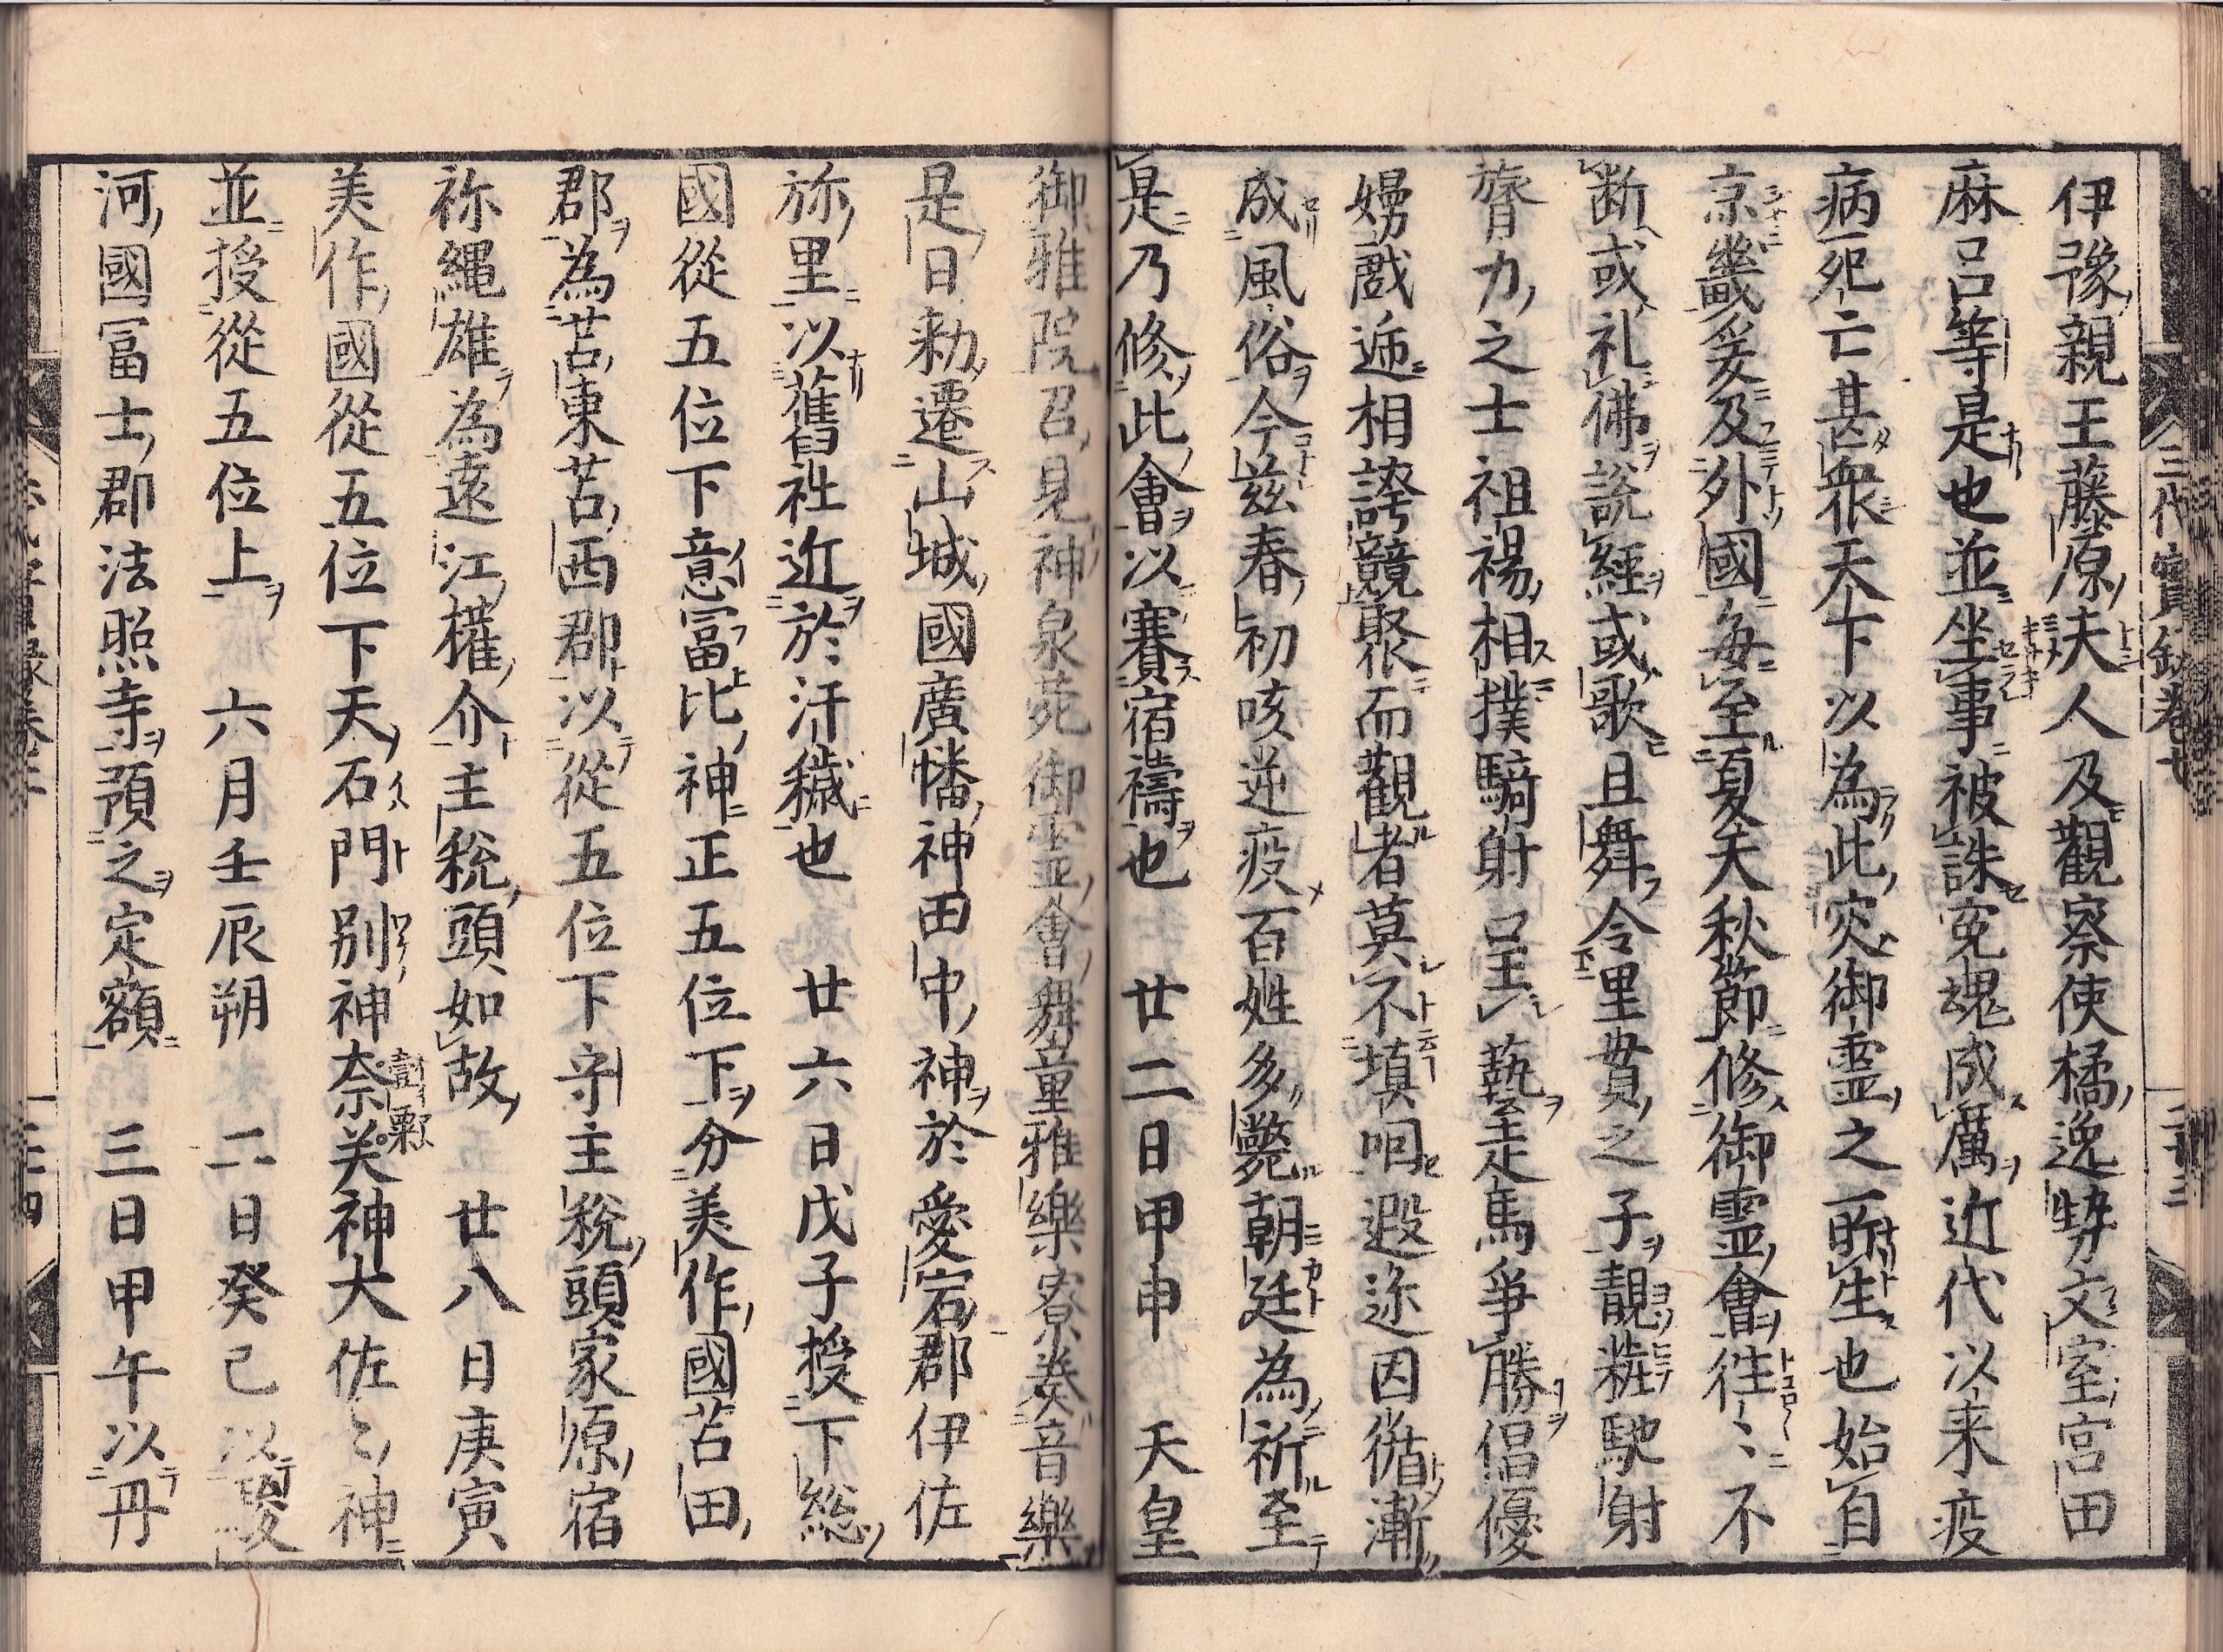 伊豫親王藤原夫人及觀察使橘逸勢文室宮田
麻呂等是也並坐事被誅寃魂成厲近代以来疫
病死亡甚衆天下以為此灾御霊之所生也始自
京畿爰及外國毎至夏天秋節修御霊會往〻不
断或礼佛説經或歌且舞令里貫之子靚粧馳射
膂力之士袒裼相撲騎射呈藝走馬爭勝倡優
嫚戯逓相誇競聚而觀者莫不填咽遐迩因循漸
成風俗今兹春初咳逆疫百姓多斃朝廷為祈至
是乃修此會以賽宿禱也　廿二日甲申　天皇
御雅院召見神泉苑御霊會舞童雅樂寮奏音樂
是日勅遷山城國廣幡神田中神於愛宕郡伊佐
弥里以舊社近於汙穢也　廿六日戊子授下総
國從五位下意冨比神正五位下分美作國苫田
郡為苫東苫西郡以從五位下守主税頭家原宿
祢縄雄為遠江權介主税頭如故　廿八日庚寅
美作國從五位下天石門別神奈美神大佐〻神
並授從五位上　六月壬辰朔　二日癸巳以駿
河國冨士郡法照寺預之定額　三日甲午以丹